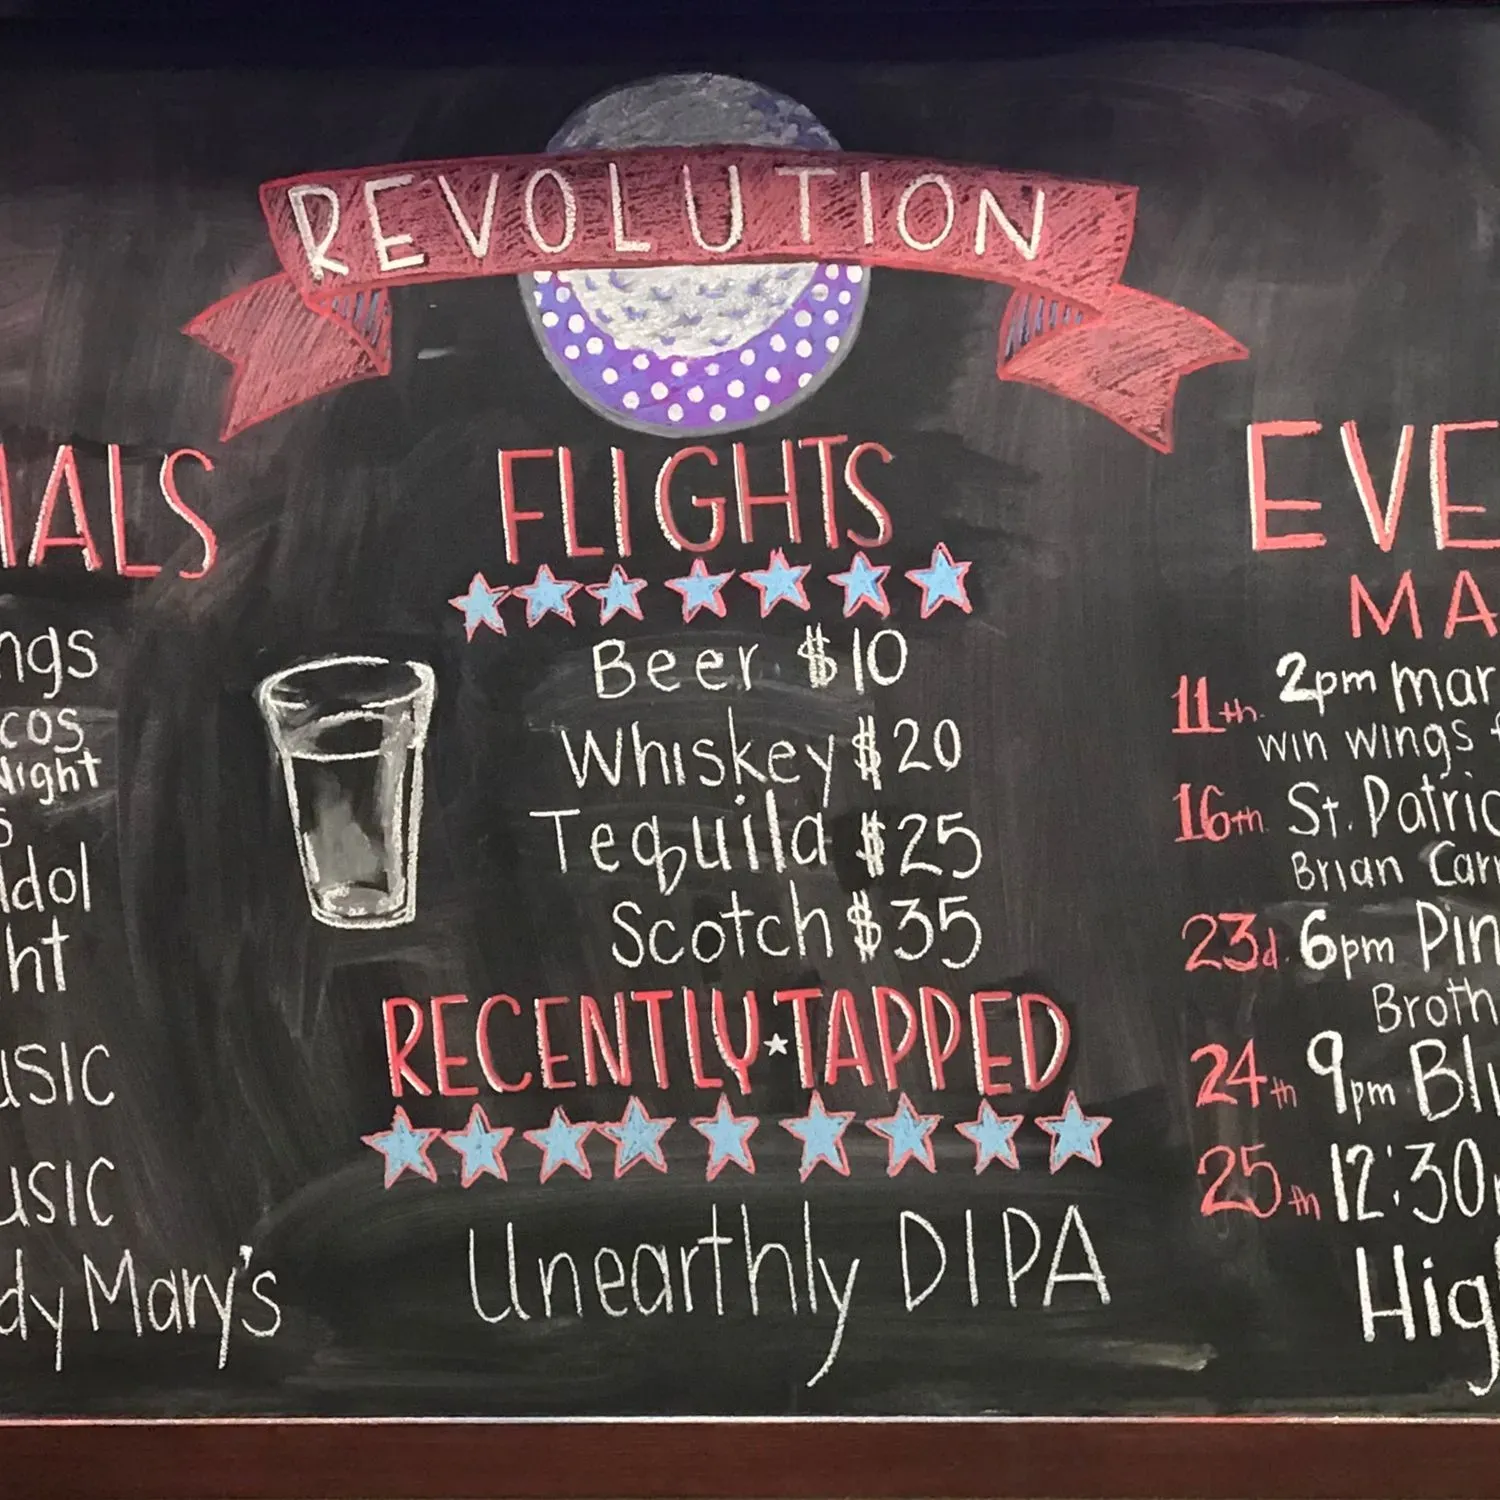 REVOLUTION
IALS
ngs
cos
Night
s
Idol
ht
usic
usic
dy Mary's
FLIGHTS
Beer $10
Whiskey $20
Tequila $25
Scotch $35
RECENTLY TAPPED
Unearthly DIPA
EVE
MA
11th 2pm mar
win wings
16th St. Patric
Brian Carr
23d 6pm Pin
Broth
24th 9pm Blu
25th 12:30
High